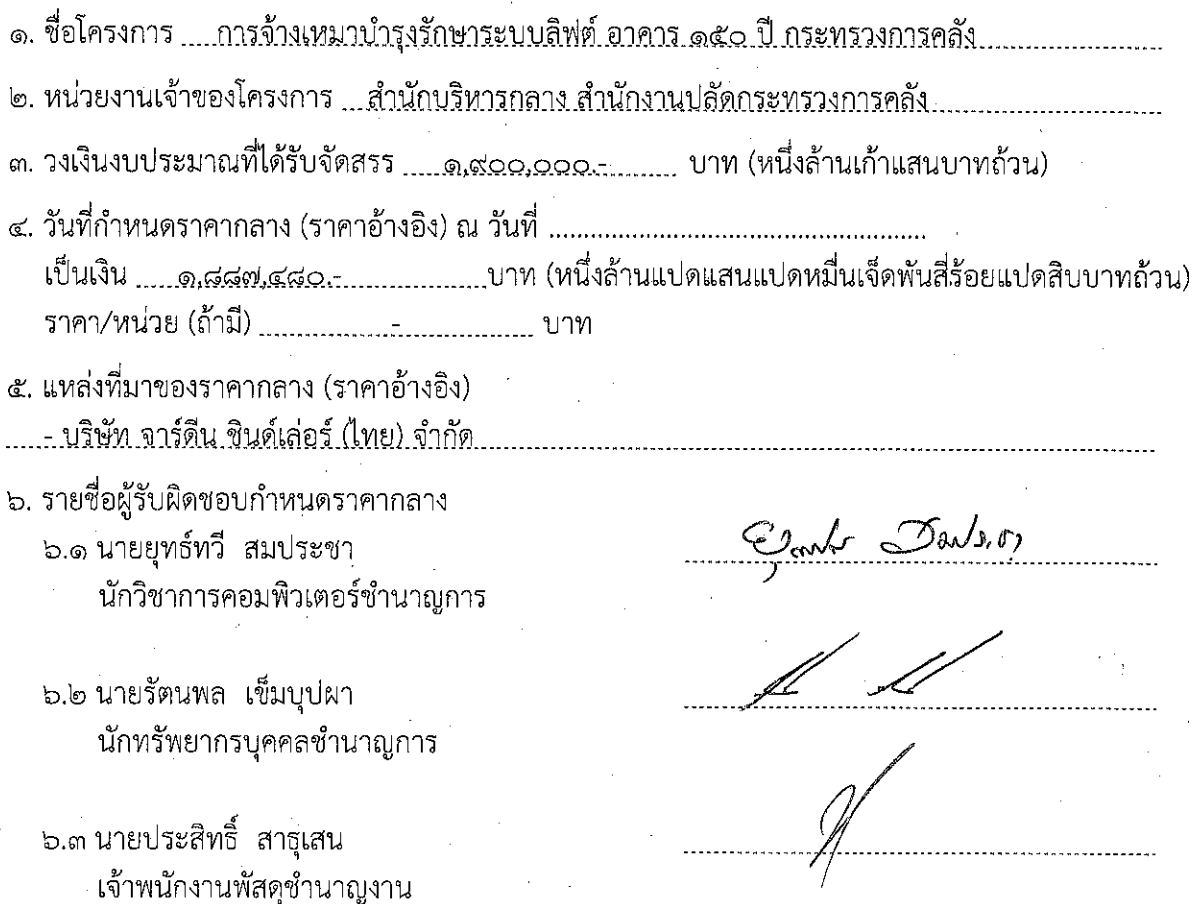 ๑. ชื่อโครงการ การจ้างเหมาบำรุงรักษาระบบลิฟต์ อาคาร ๑๕๐ ปี กระทรวงการคลัง
๒. หน่วยงานเจ้าของโครงการ สำนักบริหารกลาง สำนักงานปลัดกระทรวงการคลัง
๓. วงเงินงบประมาณที่ได้รับจัดสรร ๑,๙๐๐,๐๐๐.- บาท (หนึ่งล้านเก้าแสนบาทถ้วน)
๔. วันที่กำหนดราคากลาง (ราคาอ้างอิง) ณ วันที่ ................................................
เป็นเงิน ๑,๘๘๗,๔๘๐.- บาท (หนึ่งล้านแปดแสนแปดหมื่นเจ็ดพันสี่ร้อยแปดสิบบาทถ้วน)
ราคา/หน่วย (ถ้ามี) - บาท
๕. แหล่งที่มาของราคากลาง (ราคาอ้างอิง)
- บริษัท จาร์ดีน ชินด์เล่อร์ (ไทย) จำกัด
๖. รายชื่อผู้รับผิดชอบกำหนดราคากลาง
๖.๑ นายยุทธ์ทวี สมประชา
นักวิชาการคอมพิวเตอร์ชำนาญการ
๖.๒ นายรัตนพล เข็มบุปผา
นักทรัพยากรบุคคลชำนาญการ
๖.๓ นายประสิทธิ์ สาธุเสน
เจ้าพนักงานพัสดุชำนาญงาน